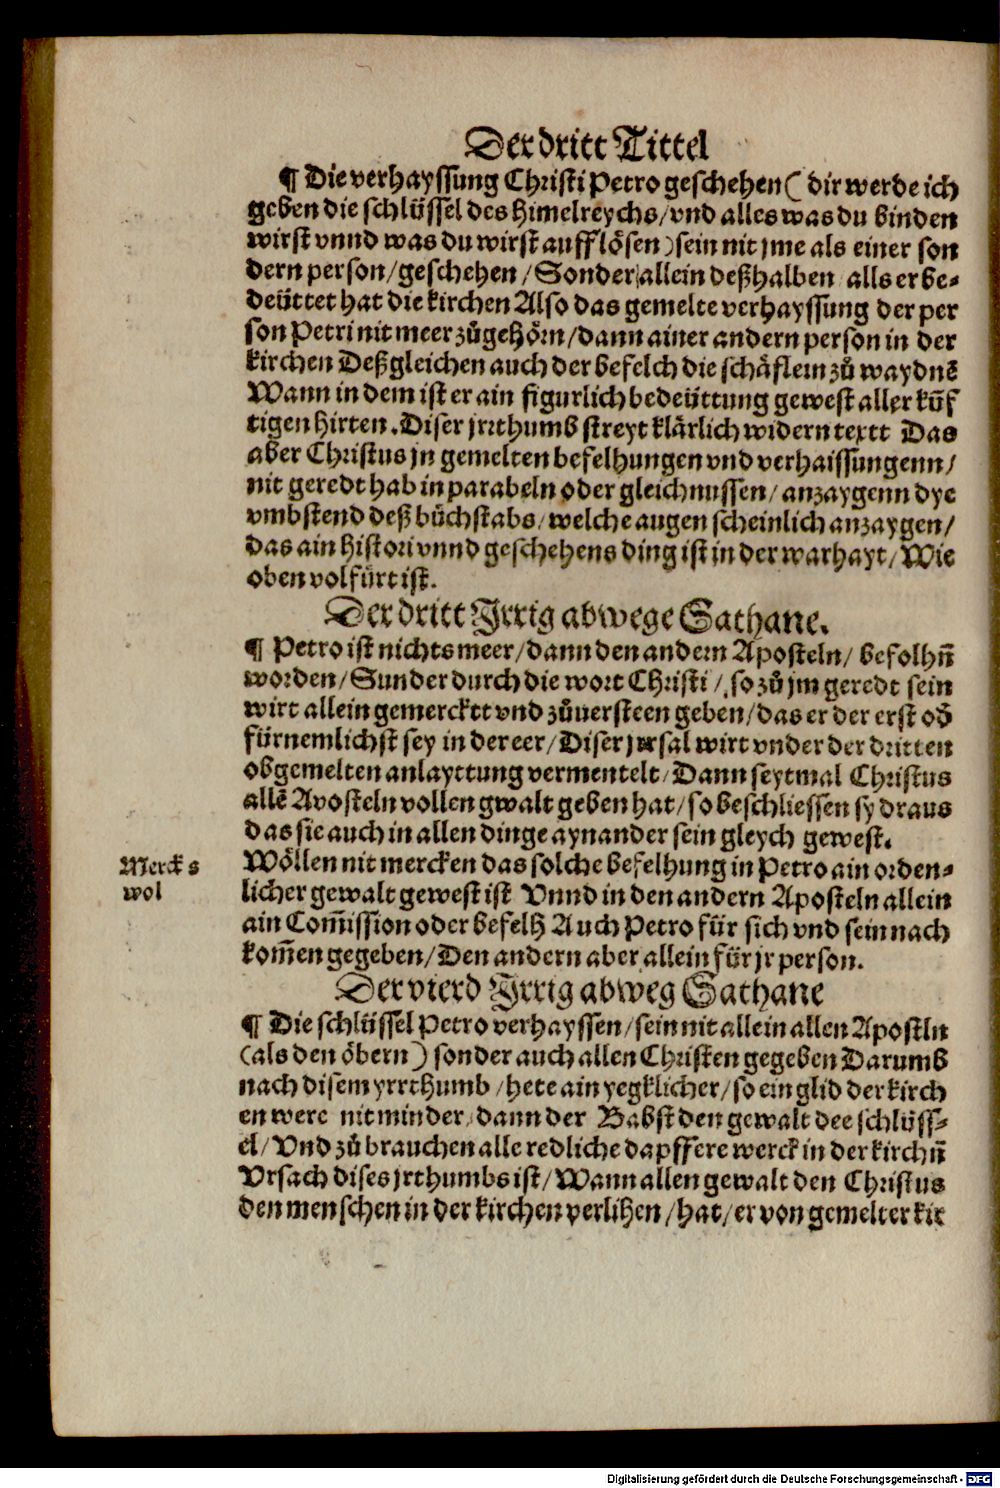 Der dritt Tittel
¶ Die verhayssung Christi Petro geschehen ( dir werde ich
geben die schlüssel des himelreychs / vnd alles was du binden
wirst vnnd was du wirst aufflösen ) sein nit jme als einer son
dern person / geschehen / Sonder allein deßhalben alls er be-
deüttet hat die kirchen Also das gemelte verhayssung der per
son Petri nit meer zůgehörn / dann ainer andern person in der
kirchen Deßgleichen auch der befelch die schäflein zů waydnē
Wann in dem ist er ain figurlich bedeüttung gewest aller küf
tigen hirten . Diser jrthumb streyt klärlich widern textt Das
aber Christus jn gemelten befelhungen vnd verhaissungenn /
nit geredt hab in parabeln oder gleichnussen / anzaygenn dye
vmbstend deß bůchstabs / welche augen scheinlich anzaygen /
das ain histori vnnd geschehens ding ist in der warhayt / Wie
oben volfürt ist .
Der dritt Irrig abwege Sathane .
¶ Petro ist nichts meer / dann den andern Aposteln / befolhn̄
worden / Sunder durch die wort Christi / so zů jm geredt sein
wirt allein gemercktt vnd zůuersteen geben / das er der erst od̄
fürnemlichst sey in der eer / Diser jrrsal wirt vnder der dritten
obgemelten anlayttung vermentelt / Dann seytmal Christus
allē Aposteln vollen gwalt geben hat / so beschliessen sy draus
das sie auch in allen dinge aynander sein gleych gewest .
Merck s
wol
Wöllen nit mercken das solche befelhung in Petro ain orden-
licher gewalt gewest ist Vnnd in den andern Aposteln allein
ain Com̄ission oder befelh Auch Petro für sich vnd sein nach
kom̄en gegeben / Den andern aber allein für jr person .
Der vierd Irrig abweg Sathane
¶ Die schlüssel Petro verhayssen / sein nit allein allen Apostln
( als den öbern ) sonder auch allen Christen gegeben Darumb
nach disem yrrthumb / hete ain yegklicher / so ein glid der kirch
en were nit minder / dann der Babst den gewalt dee schlüss-
el / Vnd zů brauchen alle redliche dapffere werck in der kirchn̄
Vrsach dises jrthumbs ist / Wann allen gewalt den Christus
den menschen in der kirchen verlihen / hat / er von gemelter kir
Digitalisierung gefördert durch die Deutsche Forschungsgemeinschaft - DFG